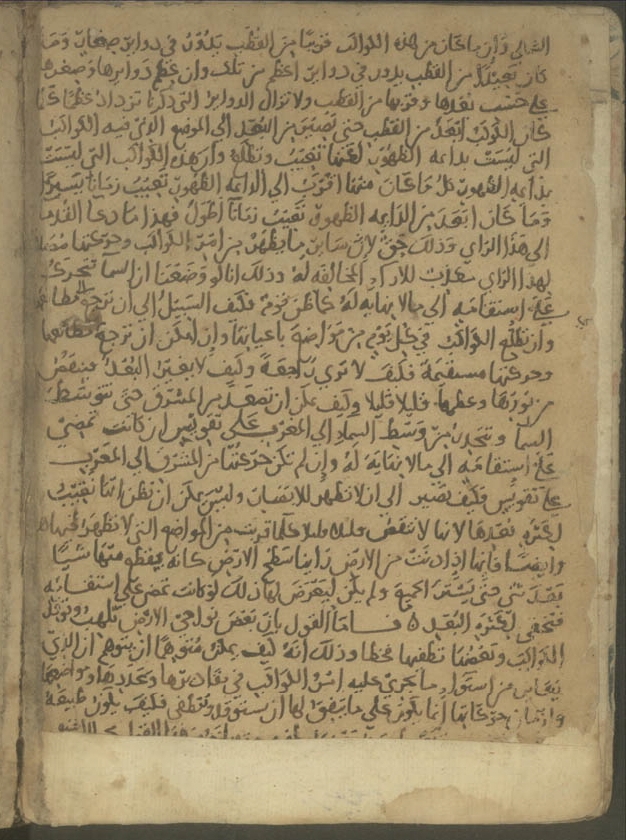 الشمالي وأن ما كان من هذه الكواكب قريبًا من القطب يدور في دواير صغار وما
كان بعيدًا من القطب يدور في دواير اعظم من تلك وان عظم دوايرها وصغرها
على حسب بعدها وقربها من القطب ولا تزال الدواير التي ذكرنا تزداد عظمًا كلما
كان الكوكب ابعد من القطب حتى تصير من البعد الى الموضع الذي فيه الكواكب
التي ليست بدايمه الظهور لكنها تغيب وتطلع وان هذه الكواكب التي ليست
بدايمه الظهور كل ما كان منها اقرب الى الدايمه الظهور تغيب زمانًا يسيرا
وما كان ابعد من الدايمه الظهور تغيب زمانًا اطول فهذا ما دعا القدما
الى هذا الراي وذلك حق لان ساير ما يظهر من امر الكواكب وحركتها
لهذا الراي المخالفه له وذلك انا لو وضعنا ان السما تتحرك
على استقامه الى ما لا نهايه له كما ظن قوم فكيف السبيل الى ان ترجع
وان تطلع الكواكب في كل يوم من مواضع باعيانها وان امكن ان ترجع
وحركتها مستقيمة فكيف لا ترى راجعةً وكيف لا يغير البعد فينقص
من نورها وعظمها قليلا قليلا وكيف يمكن ان تصعد من المشرق حتى تتوسط
السما وتنحدر من وسط السما الى المغرب على تقويس ان كانت تمضي
على استقامه الى ما لا نهايه له وان لم تكن حركتها من المشرق الى المغرب
على تقويس فكيف تصير الى ان لا تظهر للابصار وليس يمكن ان نظن انها تغيب
لكثره بعدها لانها لا تنقص قليلا قليلا كلما قربت من المواضع التي لا تظهر
وايضًا فانها اذا دنت من الارض راينا سطح الارض كانه يقطع منها شيًا
بعد شي حتى يستر الجميع ولم يكن ليعرض لها ذلك لو كانت تمضي على استقامه
فتخفى لكثره البعد ه فاما القول بان بعض نواحي الارض تلهب وتوقد
الكواكب وبعضها تطفيها فخطا وذلك انه كيف يمكن متوهمًا ان يتوهم ان الذي
من استوآء ما يجري عليه امر الكواكب في مقاديرها وعددها ومواضعها
وازمان حركاتها انما يكون على ما يتفق لها ان تستوقد وتنطفي فكيف يكون طبيعة